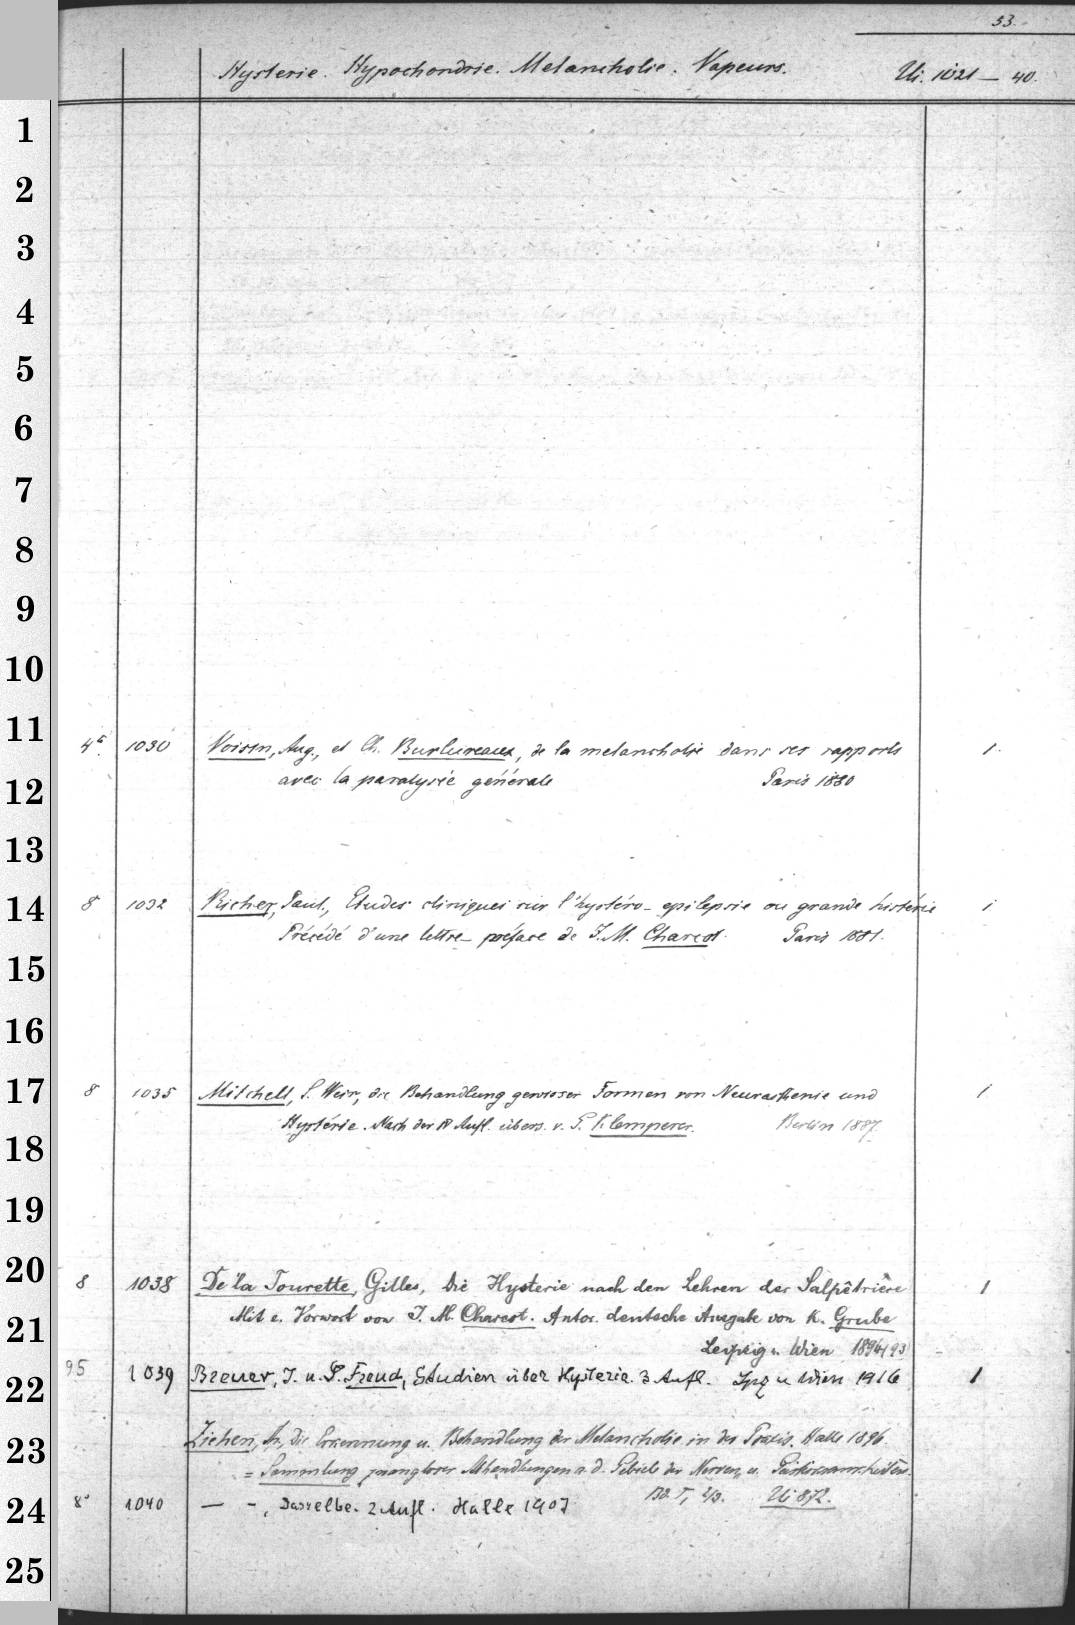 53.
Hysterie. Hypochondrie. Melancholie. Vapeurs. Ui. 1021 — 40.
1
2
3
4
5
6
7
8
9
10
11
4° 1030 Voisin, Aug., et Ch. Burlureaux, de la melancholie dans ses rapports 1.
avec la paralysie générale Paris 1880
12
13
14
8 1032 Richer, Paul, Etudes cliniques sur l'hystéro-epilepsie ou grande histérie 1
Précédé d'une lettre-préface de J. M. Charcot. Paris 1881.
15
16
17
8 1035 Mitchell, S. Weir, die Behandlung gewisser Formen von Neurasthenie und 1
Hystérie. Nach der Aufl. übers. v. G. Klemperer. Berlin 1887.
18
19
20
8 1038 De la Tourette, Gilles, Die Hysterie nach den Lehren der Salpêtrière 1
21
Mit e. Vorwort von J. M. Charcot. Autor. deutsche Ausgabe von K. Grube
Leipzig u. Wien 1894
22
95 1039 Breuer, J. u. S. Freud, Studien über Hysterie. 3 Aufl. Lpzg u Wien 1916 1
23
Ziehen, Th., Die Erkennung u. Behandlung der Melancholie in der Praxis. Halle 1896.
= Sammlung zwangloser Abhandlungen a. d. Gebiete der Nerven u. Geisteskrankheiten.
Bd. I, 2/3. Ui 872.
24
8° 1040 — –, Dasselbe. 2 Aufl. Halle 1907
25